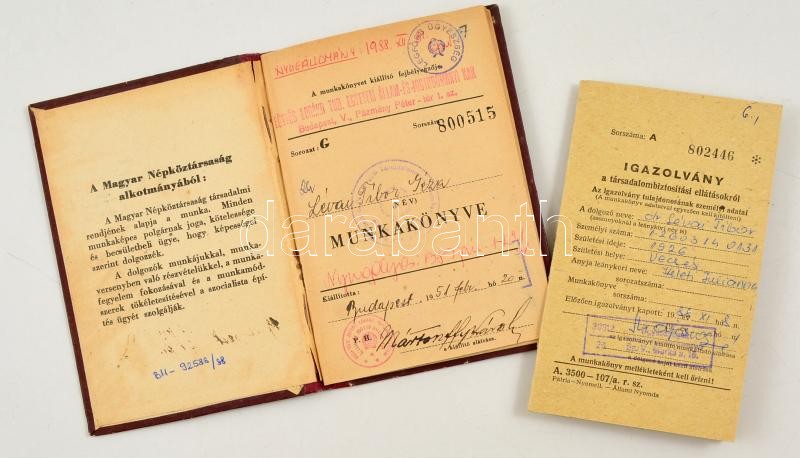 A Magyar Népköztársaság
alkotmányából:
A Magyar Népköztársaság társadalmi
rendjének alapja a munka. Minden
munkaképes polgárnak joga, kötelessége
és becsületbeli ügye, hogy képességei
szerint dolgozzék.
A dolgozók munkájukkal, munka-
versenyben való részvételükkel, a munka-
fegyelem fokozásával és a munkamód-
szerek tökéletesítésével a szocialista épí-
tés ügyét szolgálják.
BU- 92586/58
NYUGÁLLOMÁNY: 1988. XII
LEGFŐBB ÜGYÉSZSÉG
A munkakönyvet kiállító fejbélyegzője.
EÖTVÖS LORÁND TUD. EGYETEM ÁLLAM-ÉS-JOGTUDOMÁNYI KAR
Budapest, V., Pázmány Péter-tér 1. sz.
Sorozat: G Sorszám: 800515
Dr Lévai Tibor Géza
NÉV
MUNKAKÖNYVE
Kiállította: Budapest, 1951 febr. hó 20 n
P. H.
a kiállító aláírása.
darabanth
6./
Sorszáma: A 802446 *
IGAZOLVÁNY
a társadalombiztosítási ellátásokról
Az igazolvány tulajdonosának személyi adatai
(A munkakönyv adataival egyezően kell kitölteni)
A dolgozó neve: dr Lévai Tibor
(asszonyoknál a leánykori név is)
Személyi száma: 1 260314 0131
Születési ideje: 1926
Születési helye: Vecsés
Anyja leánykori neve:
Munkakönyv sorszáma:
Előzően igazolványt kapott: 19
az igazolványt kiállító munkáltató
A munkakönyv mellékleteként kell őrizni!
A. 3500-107/a. r. sz.
Pátria-Nyomell. - Állami Nyomda